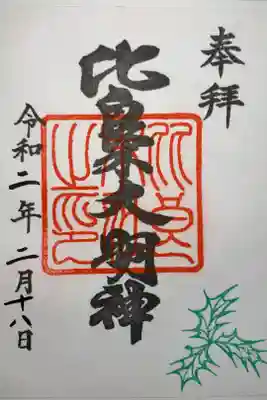 奉拝
比良木大明神
令和二年二月十八日